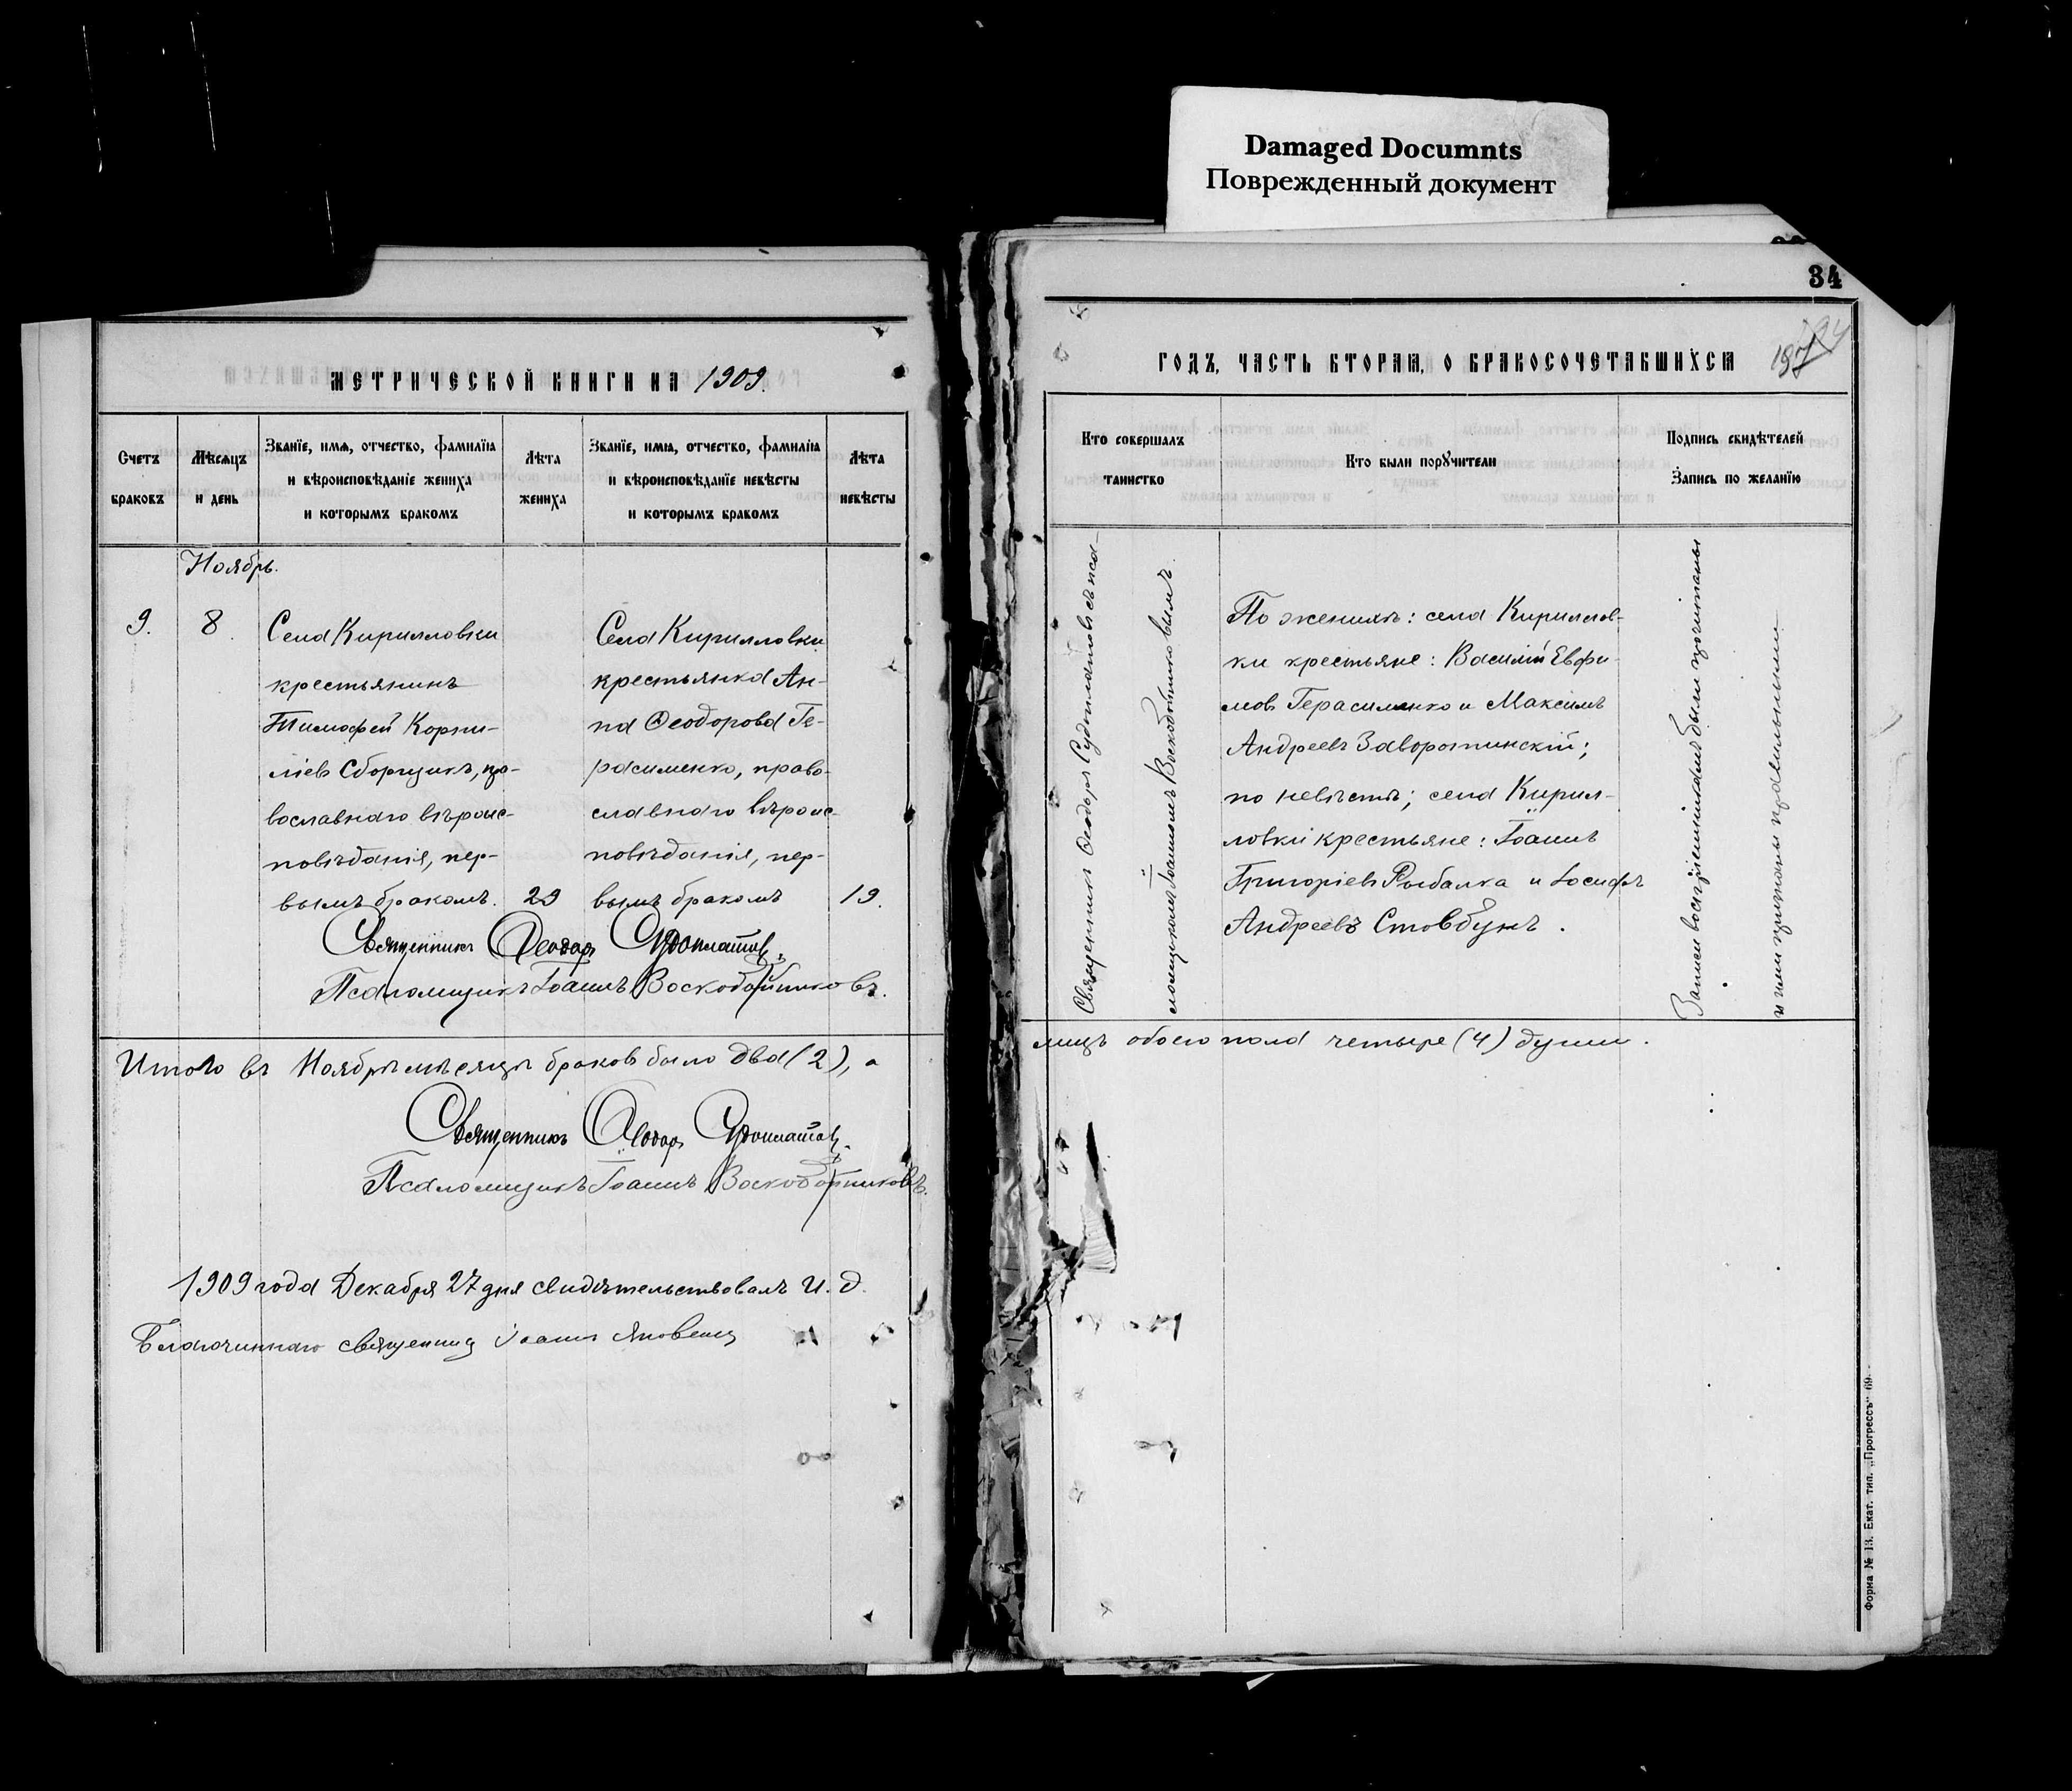 Damaged Documnts
Поврежденный документ
34
МЕТРИЧЕСКОЙ КНИГИ НА 1909.
Счетъ браковъ
Мѣсяцъ и день
Званїе, имѧ, отчество, фамилїꙗ
и вѣроисповѣданїе жениха
и которымъ бракомъ
Лѣта жениха
Званїе, имꙗ, отчество, фамилїꙗ
и вѣроисповѣданїе невѣсты
и которымъ бракомъ
Лѣта невѣсты
Ноябрь.
9.
8.
Села Кирилловки
крестьянинъ
Тимофей Корни-
лiевъ Сборщикъ, пра-
вославнаго вѣроис-
повѣданiя, пер-
вымъ бракомъ.
29
Села Кирилловки
крестьянка Ан-
на Ѳеодорова Ге-
расименко, право-
славнаго вѣроис-
повѣданiя, пер-
вымъ бракомъ
19.
Священникъ Ѳеодоръ Судоплатовъ.
Псаломщикъ Іоаннъ Воскобойниковъ.
Итого въ Ноябрѣ мѣсяцѣ браковъ было два (2), а
Священникъ Ѳеодоръ Судоплатовъ.
Псаломщикъ Іоаннъ Воскобойниковъ.
1909 года Декабря 27 дня свидѣтельствовалъ И. д.
Благочиннаго священник Iоаннъ Яковенко
ГОДЪ, ЧАСТЬ ВТОРАꙖ, О БРАКОСОЧЕТАВШИХСꙖ
Кто совершалъ
таинство
Кто были порꙋчители
Подпись свидѣтелей
Запись по желанїю
Священникъ Ѳеодоръ Судоплатовъ съ пса-
ломщикомъ Іоанномъ Воскобойниковымъ.
По женихѣ: села Кириллов-
ки крестьяне: Василiй Евфи-
мовъ Герасименко и Максимъ
Андреевъ Заворотинскiй;
по невѣстѣ; села Кирил-
ловки крестьяне: Іоаннъ
Григорiевъ Рыбалка и Iосифъ
Андреевъ Стовбунъ.
Записи воспрiемникамъ были прочитаны
и ими признаны правильными
лицъ обоего пола четыре (4) души.
Форма № 13. Екат. тип. „Прогрессъ“ 69